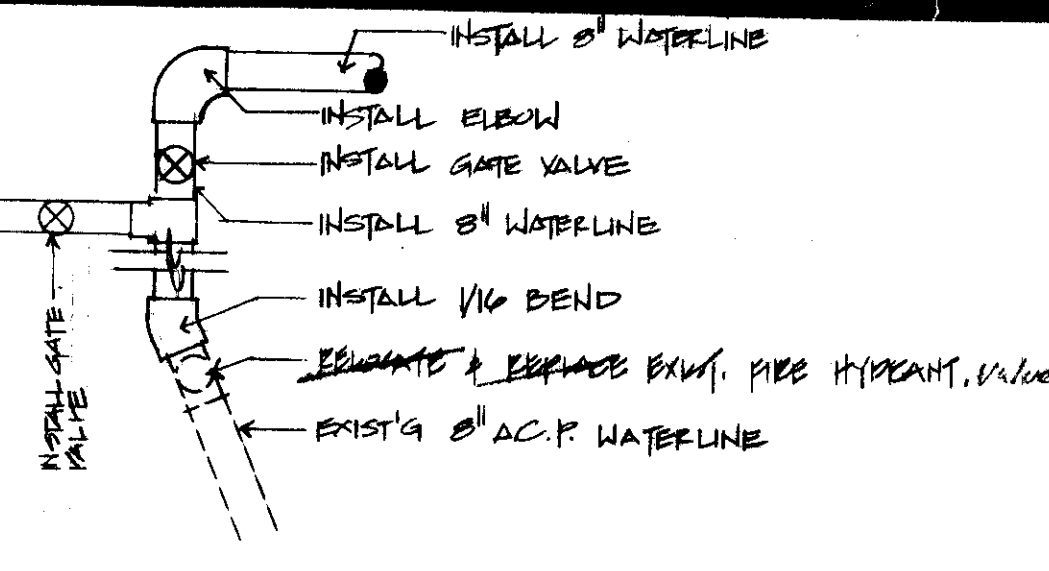 INSTALL 8" WATERLINE
INSTALL ELBOW
INSTALL GATE VALVE
INSTALL 8" WATERLINE
INSTALL 1/16 BEND
RELOCATE & REPLACE EXIST. FIRE HYDRANT. Valve
EXIST'G 8" A.C.P. WATERLINE
INSTALL GATE
VALVE